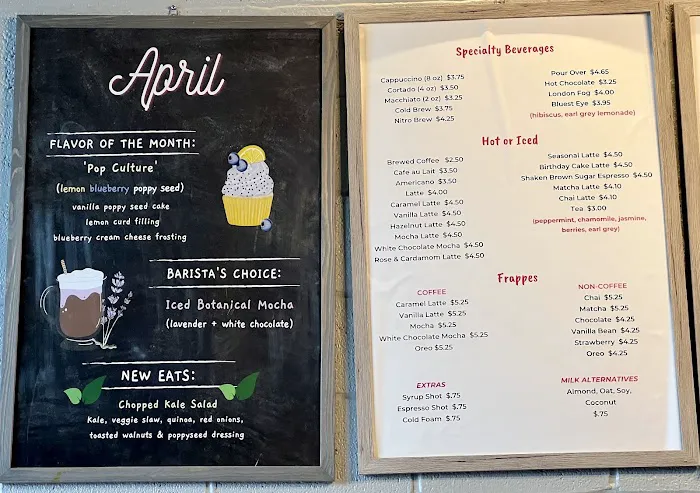 April
FLAVOR OF THE MONTH:
'Pop Culture'
(lemon blueberry poppy seed)
vanilla poppy seed cake
lemon curd filling
blueberry cream cheese frosting
BARISTA'S CHOICE:
Iced Botanical Mocha
(lavender + white chocolate)
NEW EATS:
Chopped Kale Salad
Kale, veggie slaw, quinoa, red onions,
toasted walnuts & poppyseed dressing
Specialty Beverages
Cappuccino (8 oz) $3.75
Cortado (4 oz) $3.50
Macchiato (2 oz) $3.25
Cold Brew $3.75
Nitro Brew $4.25
Pour Over $4.65
Hot Chocolate $3.25
London Fog $4.00
Bluest Eye $3.95
(hibiscus, earl grey lemonade)
Hot or Iced
Brewed Coffee $2.50
Cafe au Lait $3.50
Americano $3.50
Latte $4.00
Caramel Latte $4.50
Vanilla Latte $4.50
Hazelnut Latte $4.50
Mocha Latte $4.50
White Chocolate Mocha $4.50
Rose & Cardamom Latte $4.50
Seasonal Latte $4.50
Birthday Cake Latte $4.50
Shaken Brown Sugar Espresso $4.50
Matcha Latte $4.10
Chai Latte $4.10
Tea $3.00
(peppermint, chamomile, jasmine,
berries, earl grey)
Frappes
COFFEE
Caramel Latte $5.25
Vanilla Latte $5.25
Mocha $5.25
White Chocolate Mocha $5.25
Oreo $5.25
NON-COFFEE
Chai $5.25
Matcha $5.25
Chocolate $4.25
Vanilla Bean $4.25
Strawberry $4.25
Oreo $4.25
EXTRAS
Syrup Shot $.75
Espresso Shot $.75
Cold Foam $.75
MILK ALTERNATIVES
Almond, Oat, Soy,
Coconut
$.75